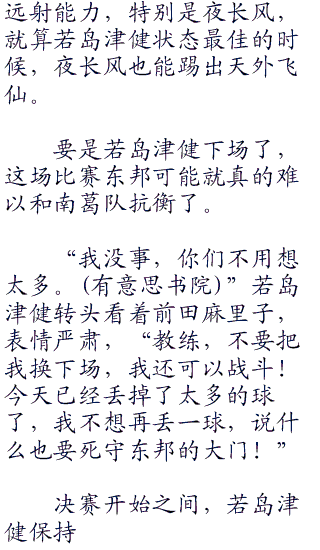 远射能力，特别是夜长风，
就算若岛津健状态最佳的时
候，夜长风也能踢出天外飞
仙。
要是若岛津健下场了，
这场比赛东邦可能就真的难
以和南葛队抗衡了。
“我没事，你们不用想
太多。(有意思书院)”若岛
津健转头看着前田麻里子，
表情严肃，“教练，不要把
我换下场，我还可以战斗！
今天已经丢掉了太多的球
了，我不想再丢一球，说什
么也要死守东邦的大门！”
决赛开始之间，若岛津
健保持